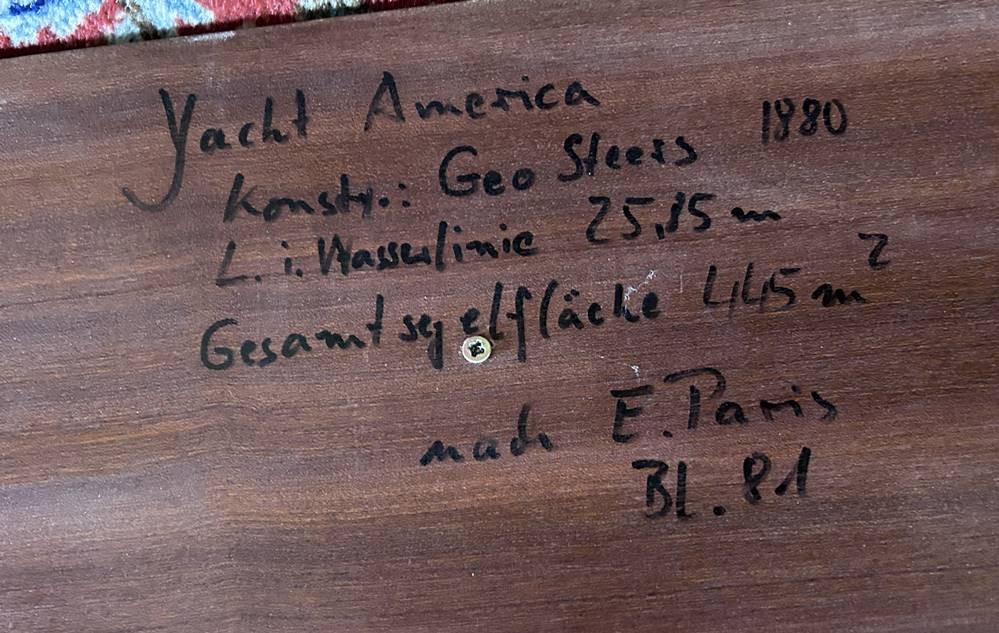 Yacht America 1880
Konstr.: Geo Steers
L. i. Wasserlinie 25,85 m
Gesamtsegelfläche 445 m²
nach E. Paris
Bl. 81